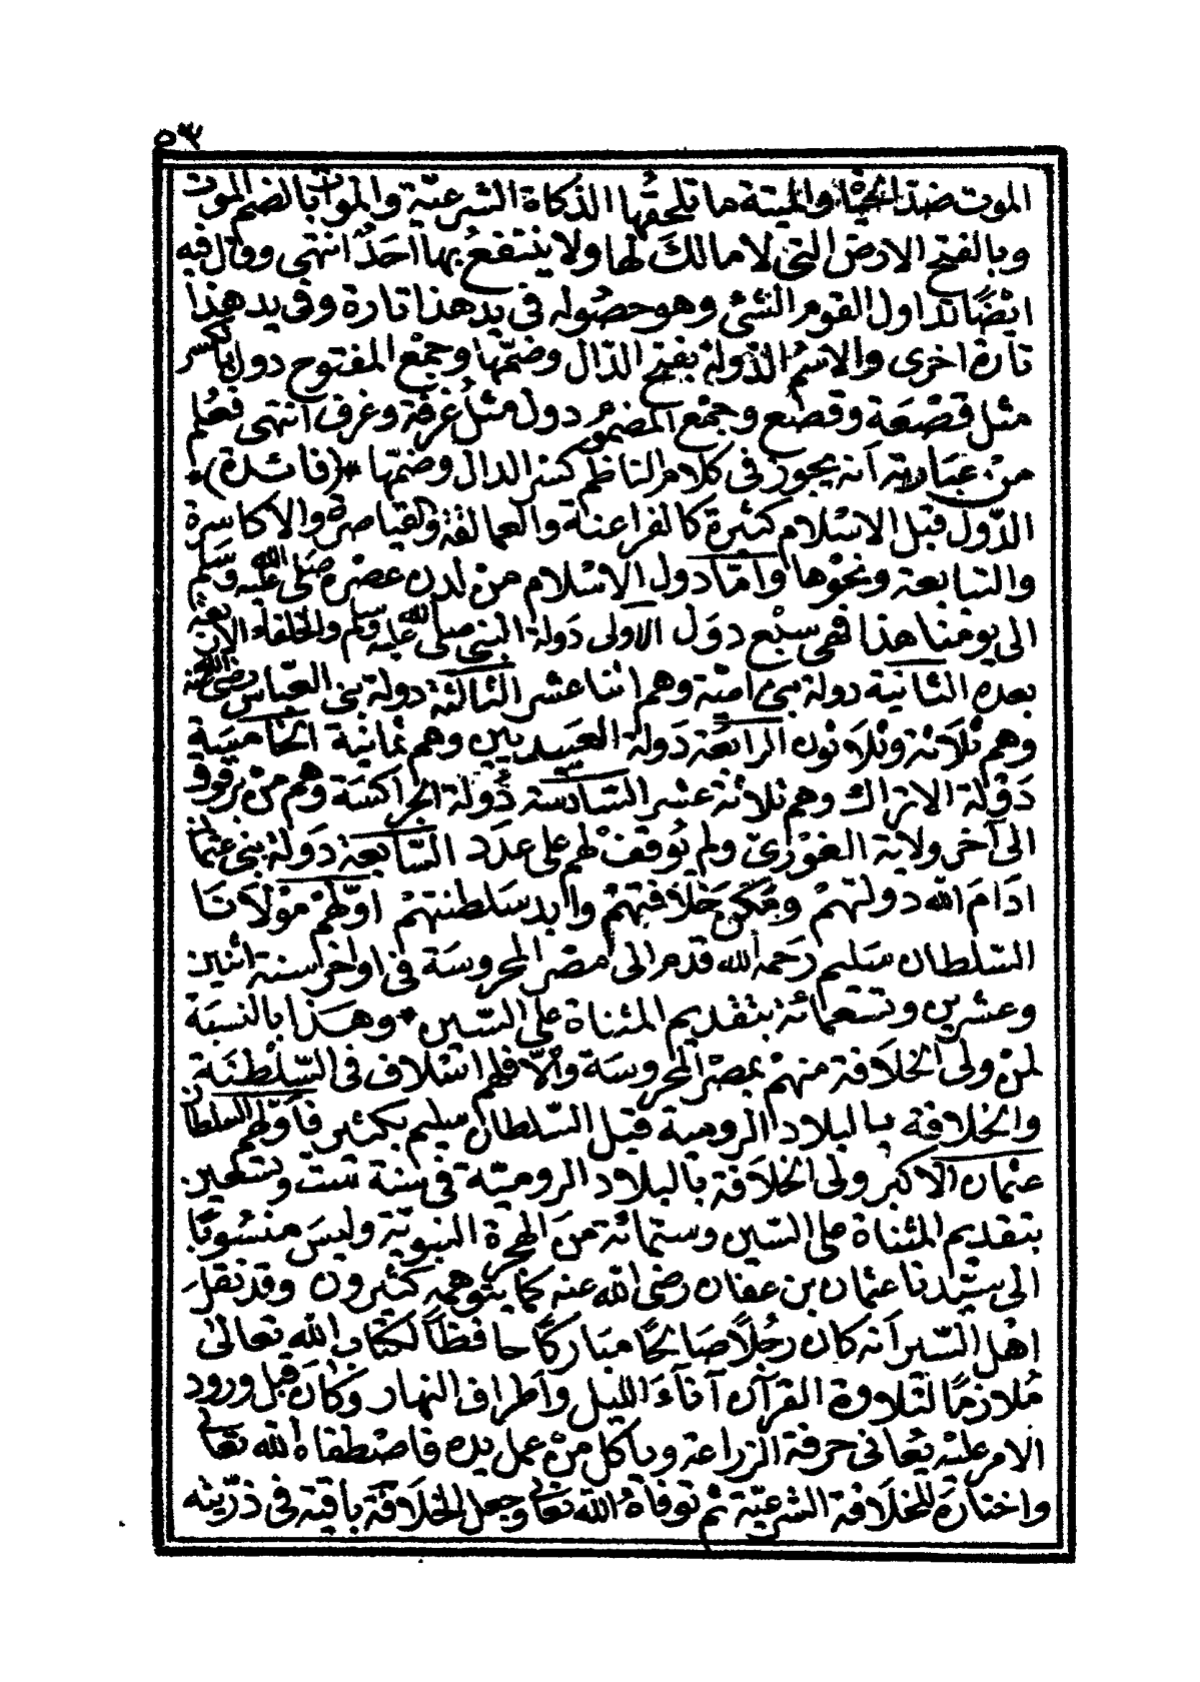 ٥٣
الموت ضدّ الحياة والميتة ما تلحقها الذكاة الشرعيّة والموات بالضم الموت
وبالفتح الارض التى لا مالكَ لها ولا ينتفعُ بها احَدٌ انتهى وقال فيه
ايضًا تداول القوم الشئ وهو حصُوله فى يد هذا تارة وفى يد هذا
تارة اخرى والاسْم الدّولة بفتح الدّال وضمّها وجمْع المفتوح دول بالكسر
مثل قصْعَة وقصَع وجمْع المضموم دول مثلُ غرفة وغرف انتهى فعُلم
منْ عبَارته أنه يجوز فى كلام الناظم كسْر الدال وضمّها *(فائدة)*
الدّول قبل الاسْلام كثيرة كالفراعنة والعمالقة والقياصرة والاكاسرة
والتبابعة ونحوْها وأمّا دول الاسْلام منْ لدن عصْره صَلى الله عليْه وسَلم
الى يومنا هذا فهى سبْع دوَل الاولى دَولة النبى صلى الله عليه وسلم والخلفاء الاربعة
بعده الثانية دولة بنى امّية وهم اثنا عشر الثالثة دولة بنى العبّاس رضى الله عنه
وهم ثلاثة وثلاثون الرابعَة دَولة العبيديين وهم ثمانية الخامسَة
دَوْلة الاتراك وهم ثلاثة عشر السّادسة دُولة الجراكسَة وهم منْ برقوق
الى آخر ولاية الغوْرىّ ولم يُوقفْ لهم على عدَد السّابعة دَولة بنى عثمان
ادَامَ الله دولتهمْ ومَكن خلافتهمْ وابد سَلطنتهمْ اوّلهمْ موْلانا
السّلطان سَليم رَحمه الله قدم الى مصْر المحروسَة فى اواخر سنة اثنين
وعشرين وتسْعمائة بتقديم المثناة على السّين * وهَذا بالنسبَة
لمنْ ولى الخلافة منهمْ بمصْر المحروسَة والّا فلهم اسْلاف فى السّلطنَة
والخلافة بالبلاد الرومية قبل السّلطان سليم بكثير فأوّلهم السلطان
عثمان الأكبر ولى الخلافة بالبلاد الروميّة فى سنة ستّ وتسْعين
بتقديم المثناة على السّين وستمائة منَ الهجرة النبويّة وليسَ منسُوبًا
الى سيّدنا عثمان بن عفان رضى الله عنه كما يتوهمه كثيرون وقد نقل
اهْل السّير أنه كان رجُلاً صَالحًا مبَاركًا حافظاً لكتاب الله تعالى
مُلازمًا لتلاوة القرآن آناءَ الليل وأطراف النهار وكانَ قبل ورود
الامر عليْه يُعانى حرفة الزراعة وياكل منْ عمل يده فاصْطفاه الله تعالى
واختارَه للخلافة الشرعيّة ثم توفاهُ الله تعالى وجعل الخلافة باقية فى ذرّيته